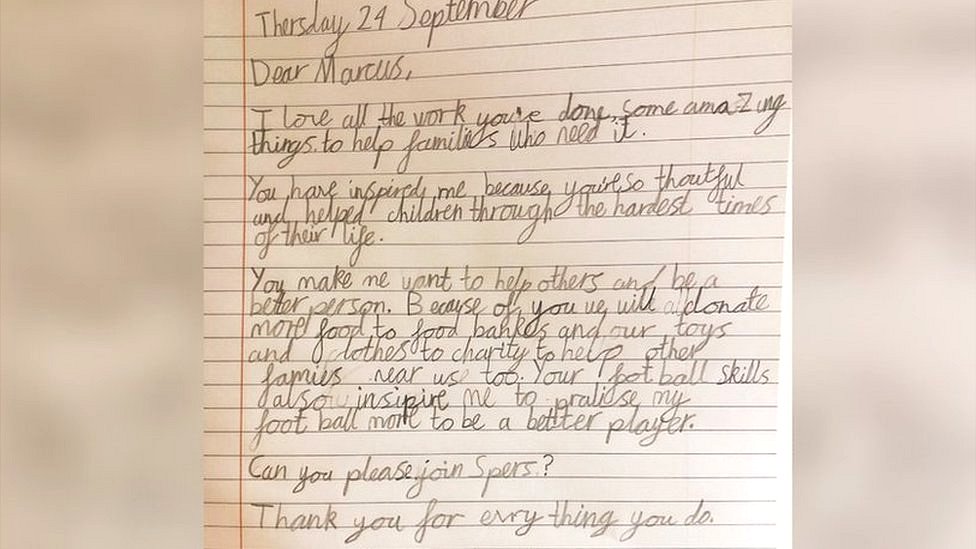 Thersday 24 September
Dear Marcus,
I love all the work you've done, some amazing
things to help families who need it.
You have inspired me because you're so thoutful
and helped children through the hardest times
of their life.
You make me want to help others and be a
beter person. Because of you we will donate
more food to food bankes and our toys
and clothes to charity to help other
famies near us too. Your foot ball skills
also insipire me to pralise my
foot ball more to be a better player.
Can you please join Spers?
Thank you for evry thing you do.